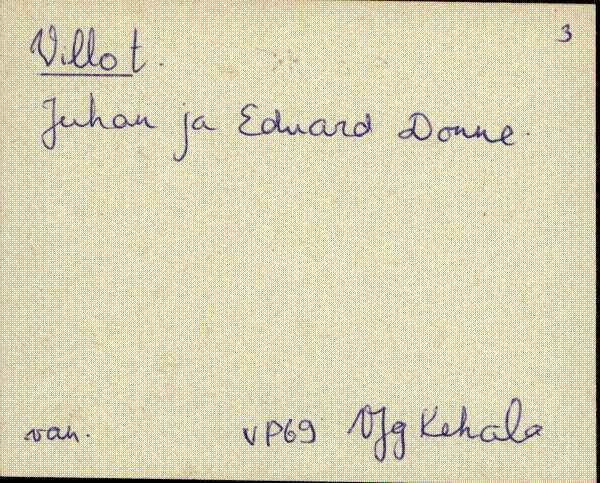 3
Villo t.
Juhan ja Eduard Donne.
van. VP69 VJg Kehala